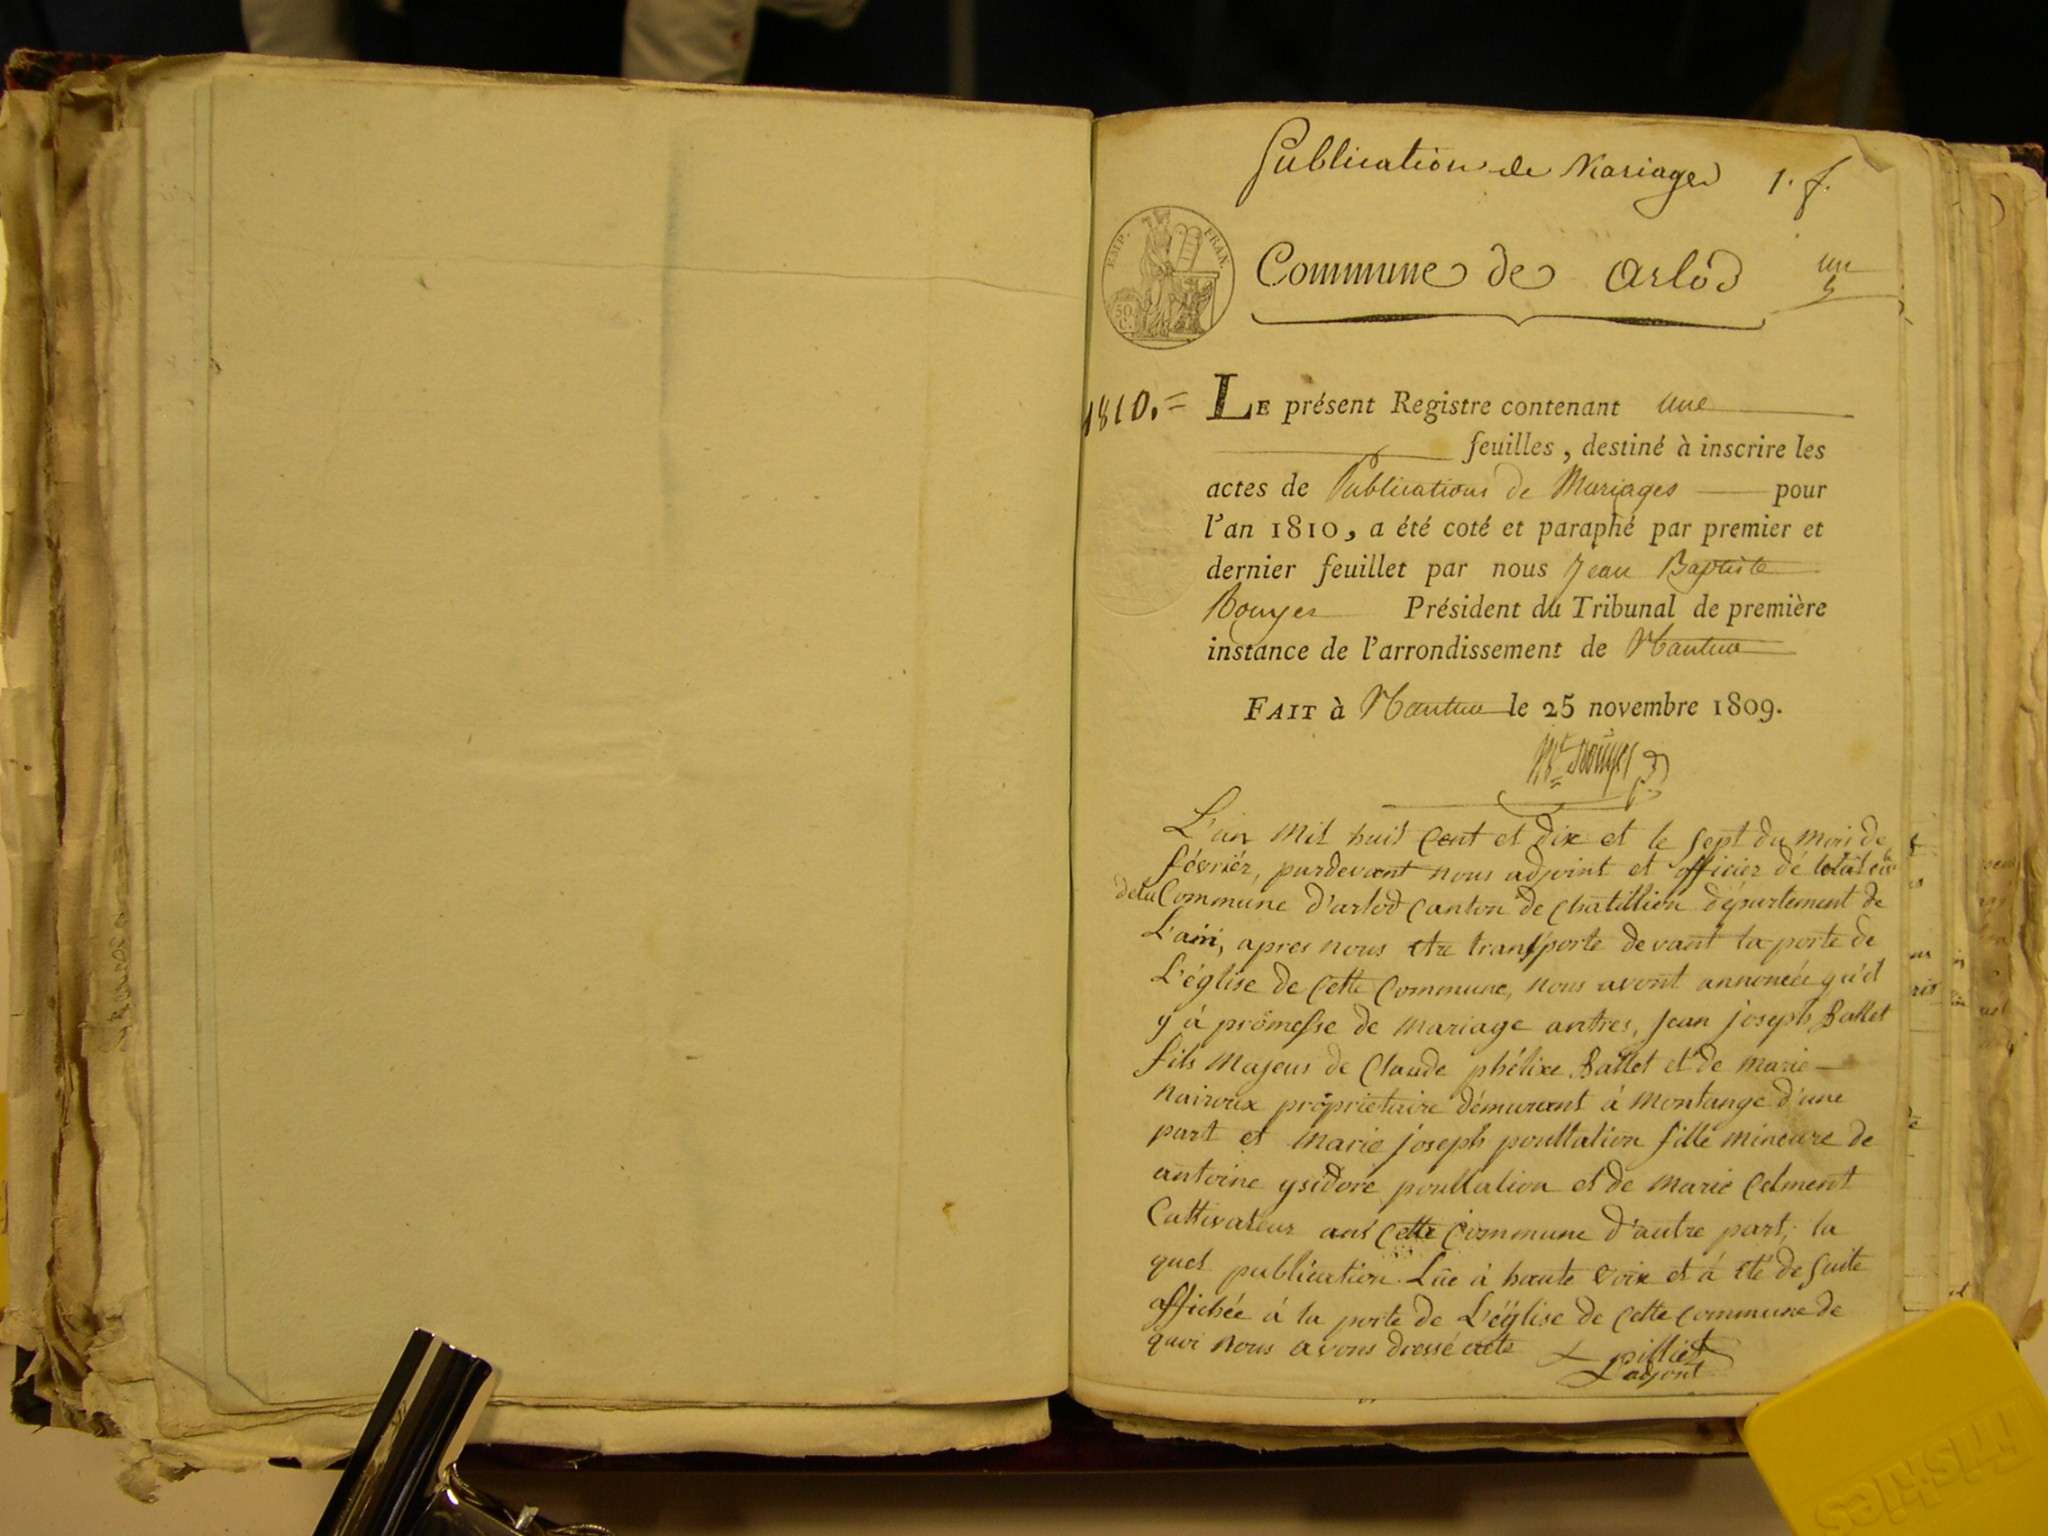 Publication de Mariages 1. f.
EMP. FRAN.
50 C.
Commune de Arlod
un
1810. =
LE présent Registre contenant une
feuilles, destiné à inscrire les
actes de Publications de Mariages pour
l'an 1810, a été coté et paraphé par premier et
dernier feuillet par nous Jean Baptiste
Bouyer Président du Tribunal de première
instance de l'arrondissement de Nantua
FAIT à Nantua le 25 novembre 1809.
Bouyer
L'an mil huit Cent et dix et le sept du mois de
février, pardevant nous adjoint et officier dé létat
de la Commune d'arlod canton de chatillion département de
L'ain, apres nous etre transporte devant la porte de
L'église de cette Commune, nous avont annoncée qu'il
y à promesse de mariage antres, jean joseph Ballet
fils majeur de Claude phélixe Ballet et de marie
nairoux propriétaire démurant à montange d'une
part et marie joseph poullalion fille mineure de
antoine ysidore poullalion et de marie Celment
Cultivateur ant cette Commune d'autre part; la
quel publication Lûe à haute voix et á été de suite
affichée à la porte de L'église de cette commune de
quoi nous avons dressé acte pilliet
L'adjont
Fris-kies